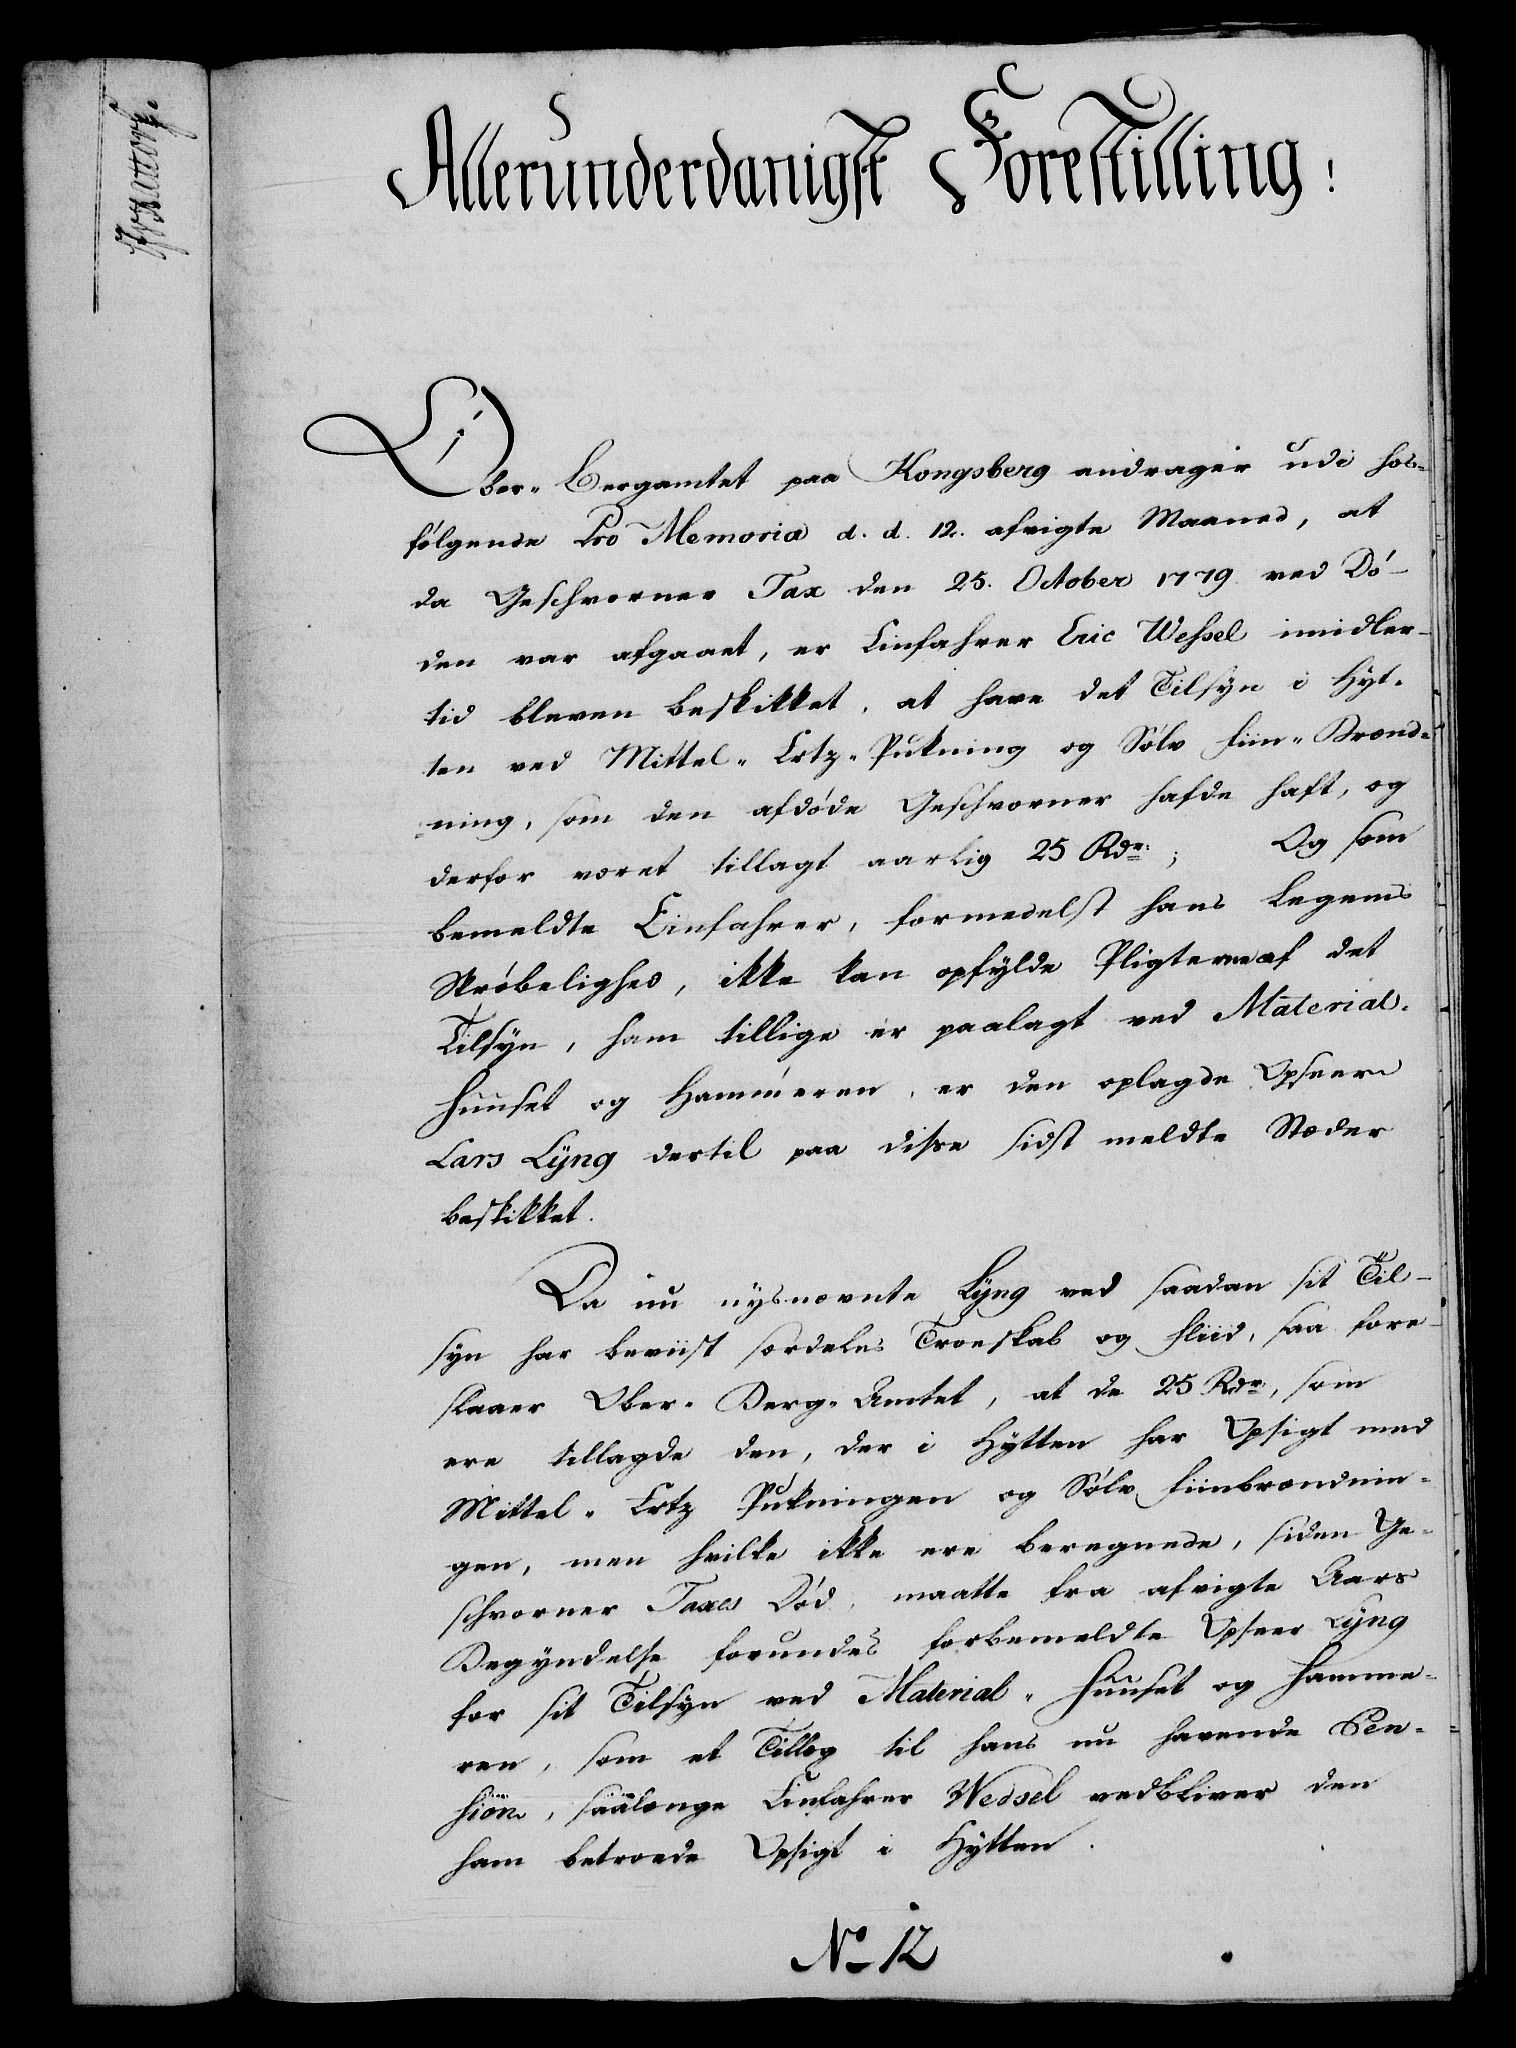 Allerunderdanigst Forestilling!
Ober-Bergamtet paa Kongsberg andrager udi hos-
følgende Pro Memoria d. d. 12. afvigte Maaned, at
da Geschworner Tax den 25. October 1779 ved Dö-
den var afgaaet, er Einfahrer Eric Wessel imidler-
tid bleven beskikket, at have det Tilsyn i Hyt-
ten ved Mittel-Ertz-Pukning og Sølv fiin-Brænd-
ning, som den afdöde Geschworner hafde haft, og
derfor været tillagt aarlig 25 Rdr.; Og som
bemeldte Einfahrer, formedelst hans Legems
Skröbelighed, ikke kan opfylde Pligterne af det
Tilsyn, ham tillige er paalagt ved Material-
huuset og Hammeren, er den oplagde Opseer
Lars Lyng dertil paa disse sidst meldte Stæder
beskikket.
Da nu nysnævnte Lyng ved saadan sit Til-
syn har beviist særdeles Troeskab og Fliid, saa fore-
slaaer Ober-Berg-Amtet, at de 25 Rdr., som
ere tillagde den, der i Hytten har Opsigt med
Mittel-Ertz Pukningen og Sølv fiinbrændnin-
gen, men hvilke ikke ere beregnede, siden Ge-
schworner Taxes Død, maatte fra afvigte Aars
Begyndelse forundes forbemeldte Opseer Lyng
for sit Tilsyn ved Material-Huuset og Hamme-
ren, som et Tillæg til hans nu havende Pen-
sion, saalænge Einfahrer Wessel vedbliver den
ham betroede Opsigt i Hytten.
No 12